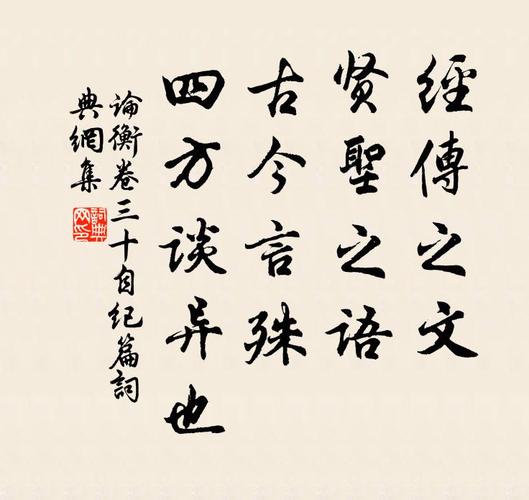 經傳之文
贤聖之语
古今言殊
四方谈异也
论衡卷三十自纪篇詞
典網集
詞典
网印